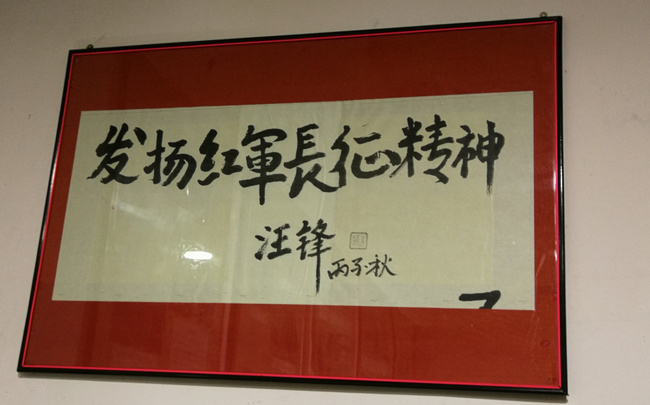 发扬红軍長征精神
汪锋
丙子秋